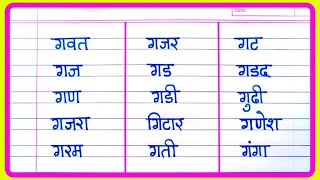 गवत गजर गट
गज गड गडद
गण गडी गुढी
गजरा गिटार गणेश
गरम गती गंगा